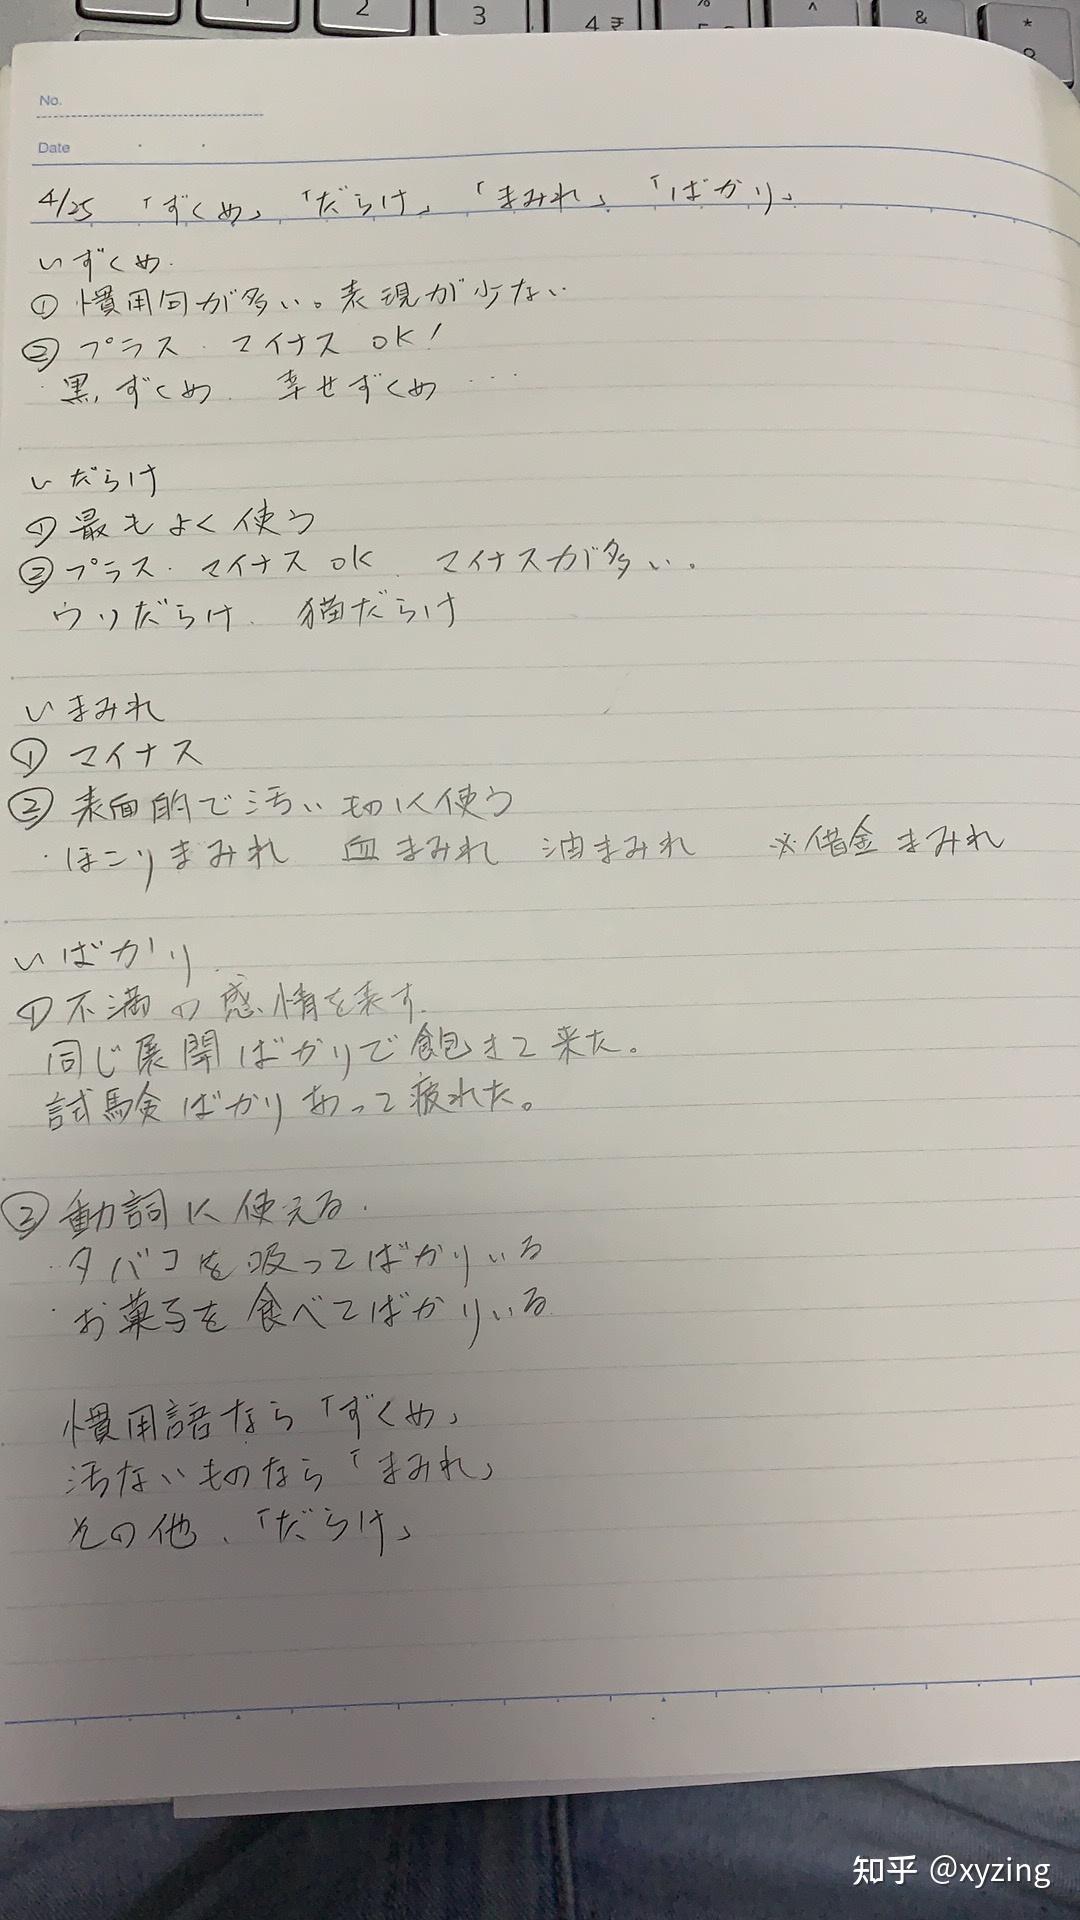 2
3
4 ₹
%
5
^
&
*
No.
Date
4/25 「ずくめ」 「だらけ」 「まみれ」 「ばかり」
いずくめ.
① 慣用句が多い。表現が少ない
② プラス . マイナス OK!
・黒ずくめ. 幸せずくめ ・・・
いだらけ
① 最もよく使う
② プラス. マイナス OK. マイナスが多い。
ウソだらけ. 猫だらけ
いまみれ
① マイナス
② 表面的で汚いものに使う
・ほこりまみれ 血まみれ 油まみれ ※借金まみれ
いばかり.
① 不満の感情を表す.
同じ展開ばかりで飽きて来た。
試験ばかりあって疲れた。
② 動詞に使える.
・タバコを吸ってばかりいる
・お菓子を食べてばかりいる.
慣用語なら「ずくめ」
汚ないものなら「まみれ」
その他、「だらけ」
知乎 @xyzing